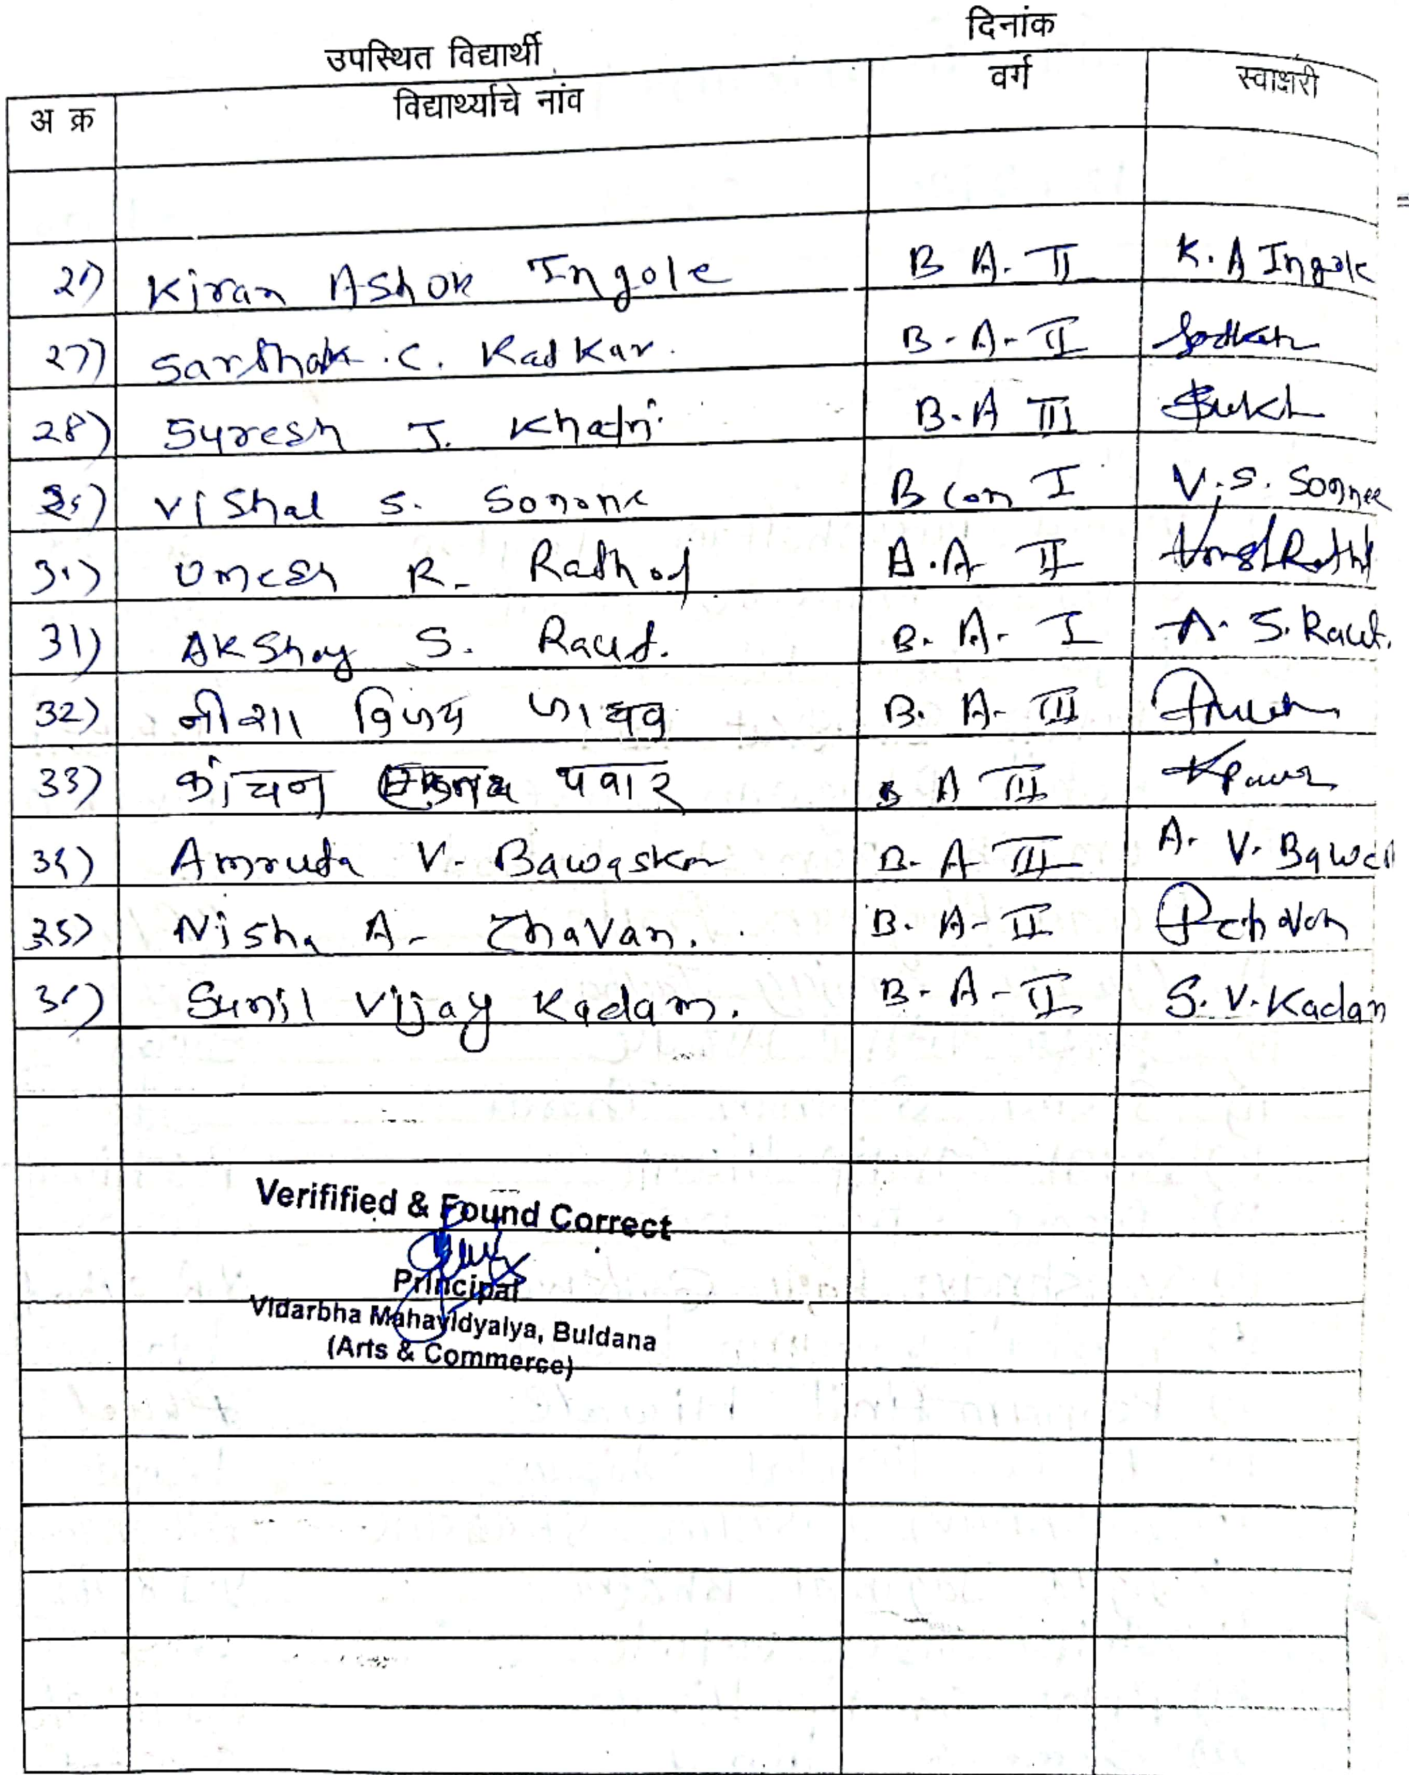 दिनांक
उपस्थित विद्यार्थी
अ क्र विद्यार्थ्याचे नांव वर्ग स्वाक्षरी
Kiran Ashok Ingole B A. II K. A Ingole
27) Sarthak .C. Kadkar. B-A-II
28) Suresh J. Khatri B.A III
Vishal S. Sonone B com I V.S.
Umesh R. Rathod II
31) Akshay S. Raut. B. A- I A. S. Raut.
32) विजय जाधव B. A- III
33) कांचन पवार B A III
Amruta V. Bawaskar B. A III A. V.
35) Nisha A- Chavan. B. A- II
Sunil Vijay Kadam. B- A-II S. V. Kadam
Verifified & Found Correct
Principal
Vidarbha Mahavidyalya, Buldana
(Arts & Commerce)